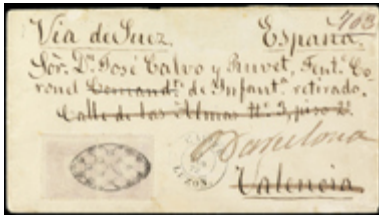 703
Via de Suez. España.
Sór. Dn. José Calvo y Pruvet, Tente. Co-
ronel Comandte. de Infanta. retirado.
Calle de las Almas No. 3, piso 2o.
Barcelona
LUZON
Valencia.